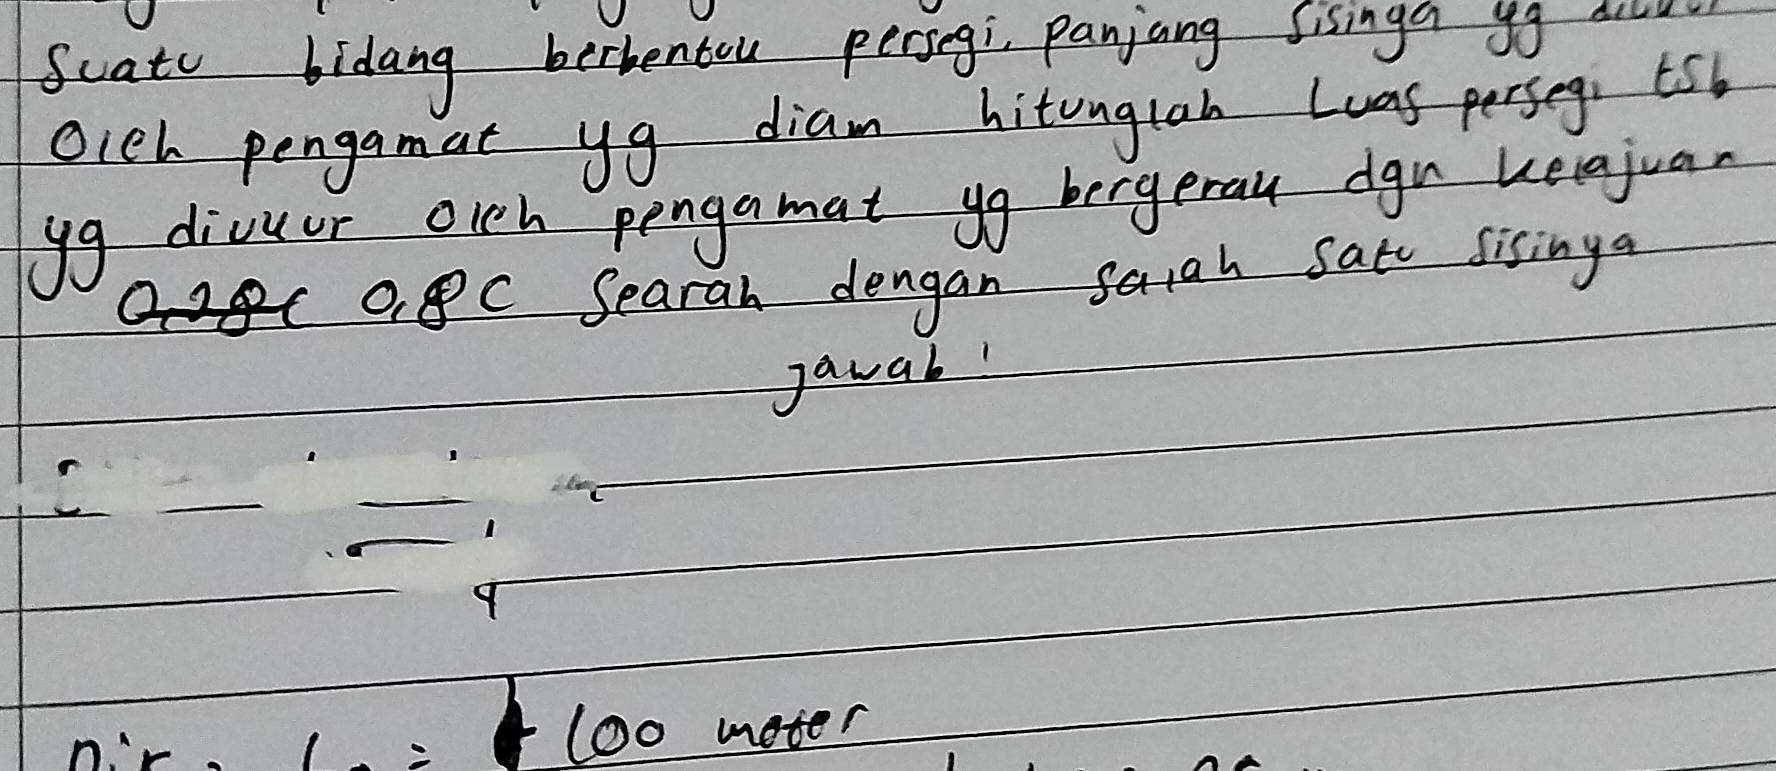 Suatu bidang berbentuk persegi, panjang sisinya yg diukur
Oleh pengamat yg diam hitunglah Luas persegi tsb
yg diukur oleh pengamat yg bergerak dgn kelajuan
0,28c 0,8 C Searah dengan salah satu sisinya
Jawab :
Dik : Lo = 100 meter